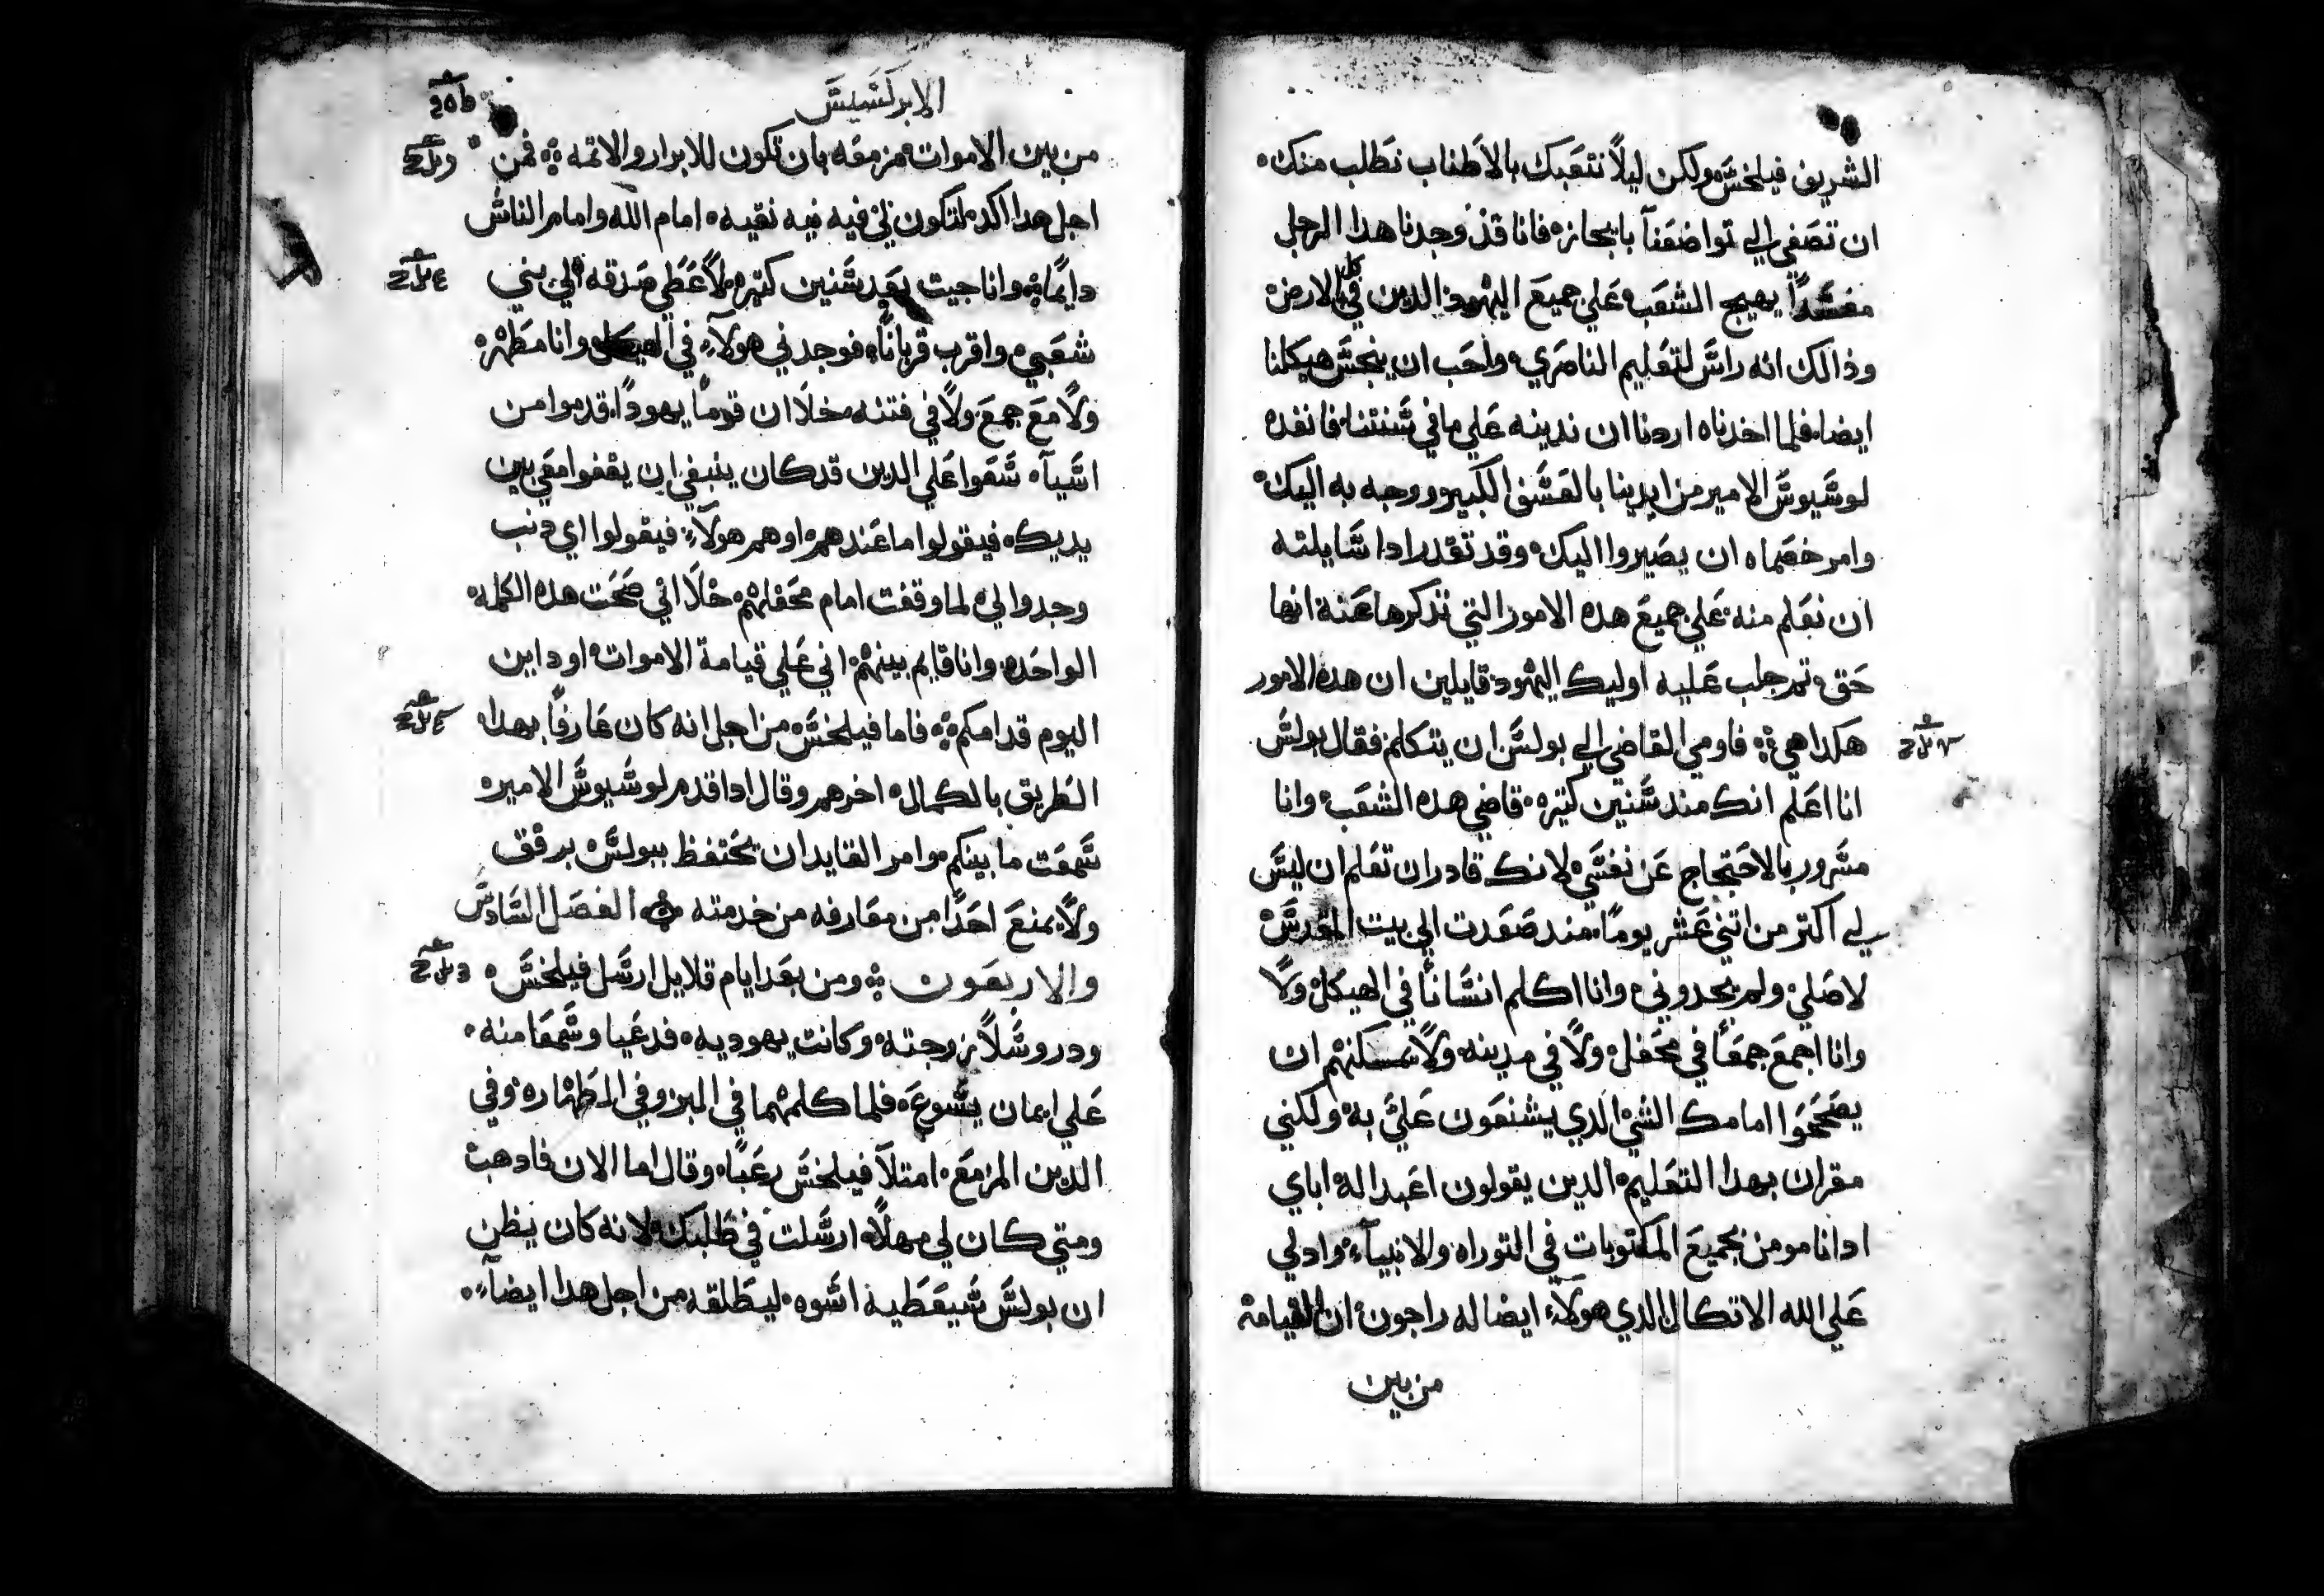 الشريف فيلخس ولكن ليلا نتعبك بالاطناب نطلب منك
ان تصغي الي تواضعنا بايجازه فانا قد وجدنا هدا الرجل
مفسدا يهيج الشعب علي جميع اليهود الدين في كل الارض
وذالك انه راس لتعليم الناصري واحب ان ينجس هيكلنا
ايضا فلما اخدناه اردنا ان ندينه علي ما في سنتنا فانفده
لوسيوس الامير من ايدينا بالعسف الكبير ووجه به اليك
وامر خصماه ان يصيروا اليك وقد تقدر ادا سايلته
ان نعلم منه علي جميع هده الامور التي تذكرها عنه انها
حق تم جلب عليه اوليك اليهود قايلين ان هده الامور
هكدا هي فاومي القاضي الي بولس ان يتكلم فقال بولس
انا اعلم انك مند سنين كتيره قاضي هده الشعب وانا
مسرور بالاحتجاج عن نفسي لانك قادر ان تعلم ان ليس
لي اكتر من اتني عشر يوما مند صعدت الي بيت المقدس
لاصلي ولم يجدوني وانا اكلم انسانا في الهيكل ولا
وانا اجمع جمعا في محفل ولا في مدينه ولا يمكنهم ان
يصححوا امامك الشي الدي يشنعون علي به ولكني
مقر ان بهدا التعليم الدين يقولون اعبد اله اباي
اد انا مومن بجميع المكتوبات في التوراه والانبيآء واد لي
علي الله الاتكال الدي هولآء ايضا له راجون ان القيامه
من بين
الابركسيس
من بين الاموات مزمعه بان تكون للابرار والاتمه فمن
اجل هدا اكد لتكون لي فيه نيه نقيه امام الله وامام الناس
دايما وانا جيت بعد سنين كتيره لاعطي صدقه الي بني
شعبي واقرب قربانا فوجدني هولآء في الهيكل وانا مطهر
ولا مع جمع ولا في فتنه خلا ان قوما يهودا قدموا من
اسيآ شعوا علي الدين قد كان ينبغي ان يقفوا معي بين
يديك فيقولوا ما عندهم او هم هولآء فيقولوا اي دنب
وجدوا لي لما وقفت امام محفلهم خلا اني صحت هده الكلمه
الواحده وانا قايم بينهم اني علي قيامة الاموات اوداين
اليوم قدامكم فاما فيلخس من اجل انه كان عارفا بهدا
الطريق بالكمال اخرهم وقال ادا قدم لوسيوس الامير
سمعت ما بينكم وامر القايد ان يحتفظ ببولس برفق
ولا يمنع احدا من معارفه من خدمته الفصل السادس
والاربعون ومن بعد ايام قلايل ارسل فيلخس
ودروسلا زوجته وكانت يهوديه فدعيا وسمعا منه
علي ايمان يسوع فلما كلمهما في البر وفي الطهاره وفي
الدين المزمع امتلا فيلخس رعبا وقال اما الان فادهب
ومتي كان لي مهلا ارسلت في طلبك لانه كان يظن
ان بولس سيعطيه اشوه ليطلقه من اجل هدا ايضا